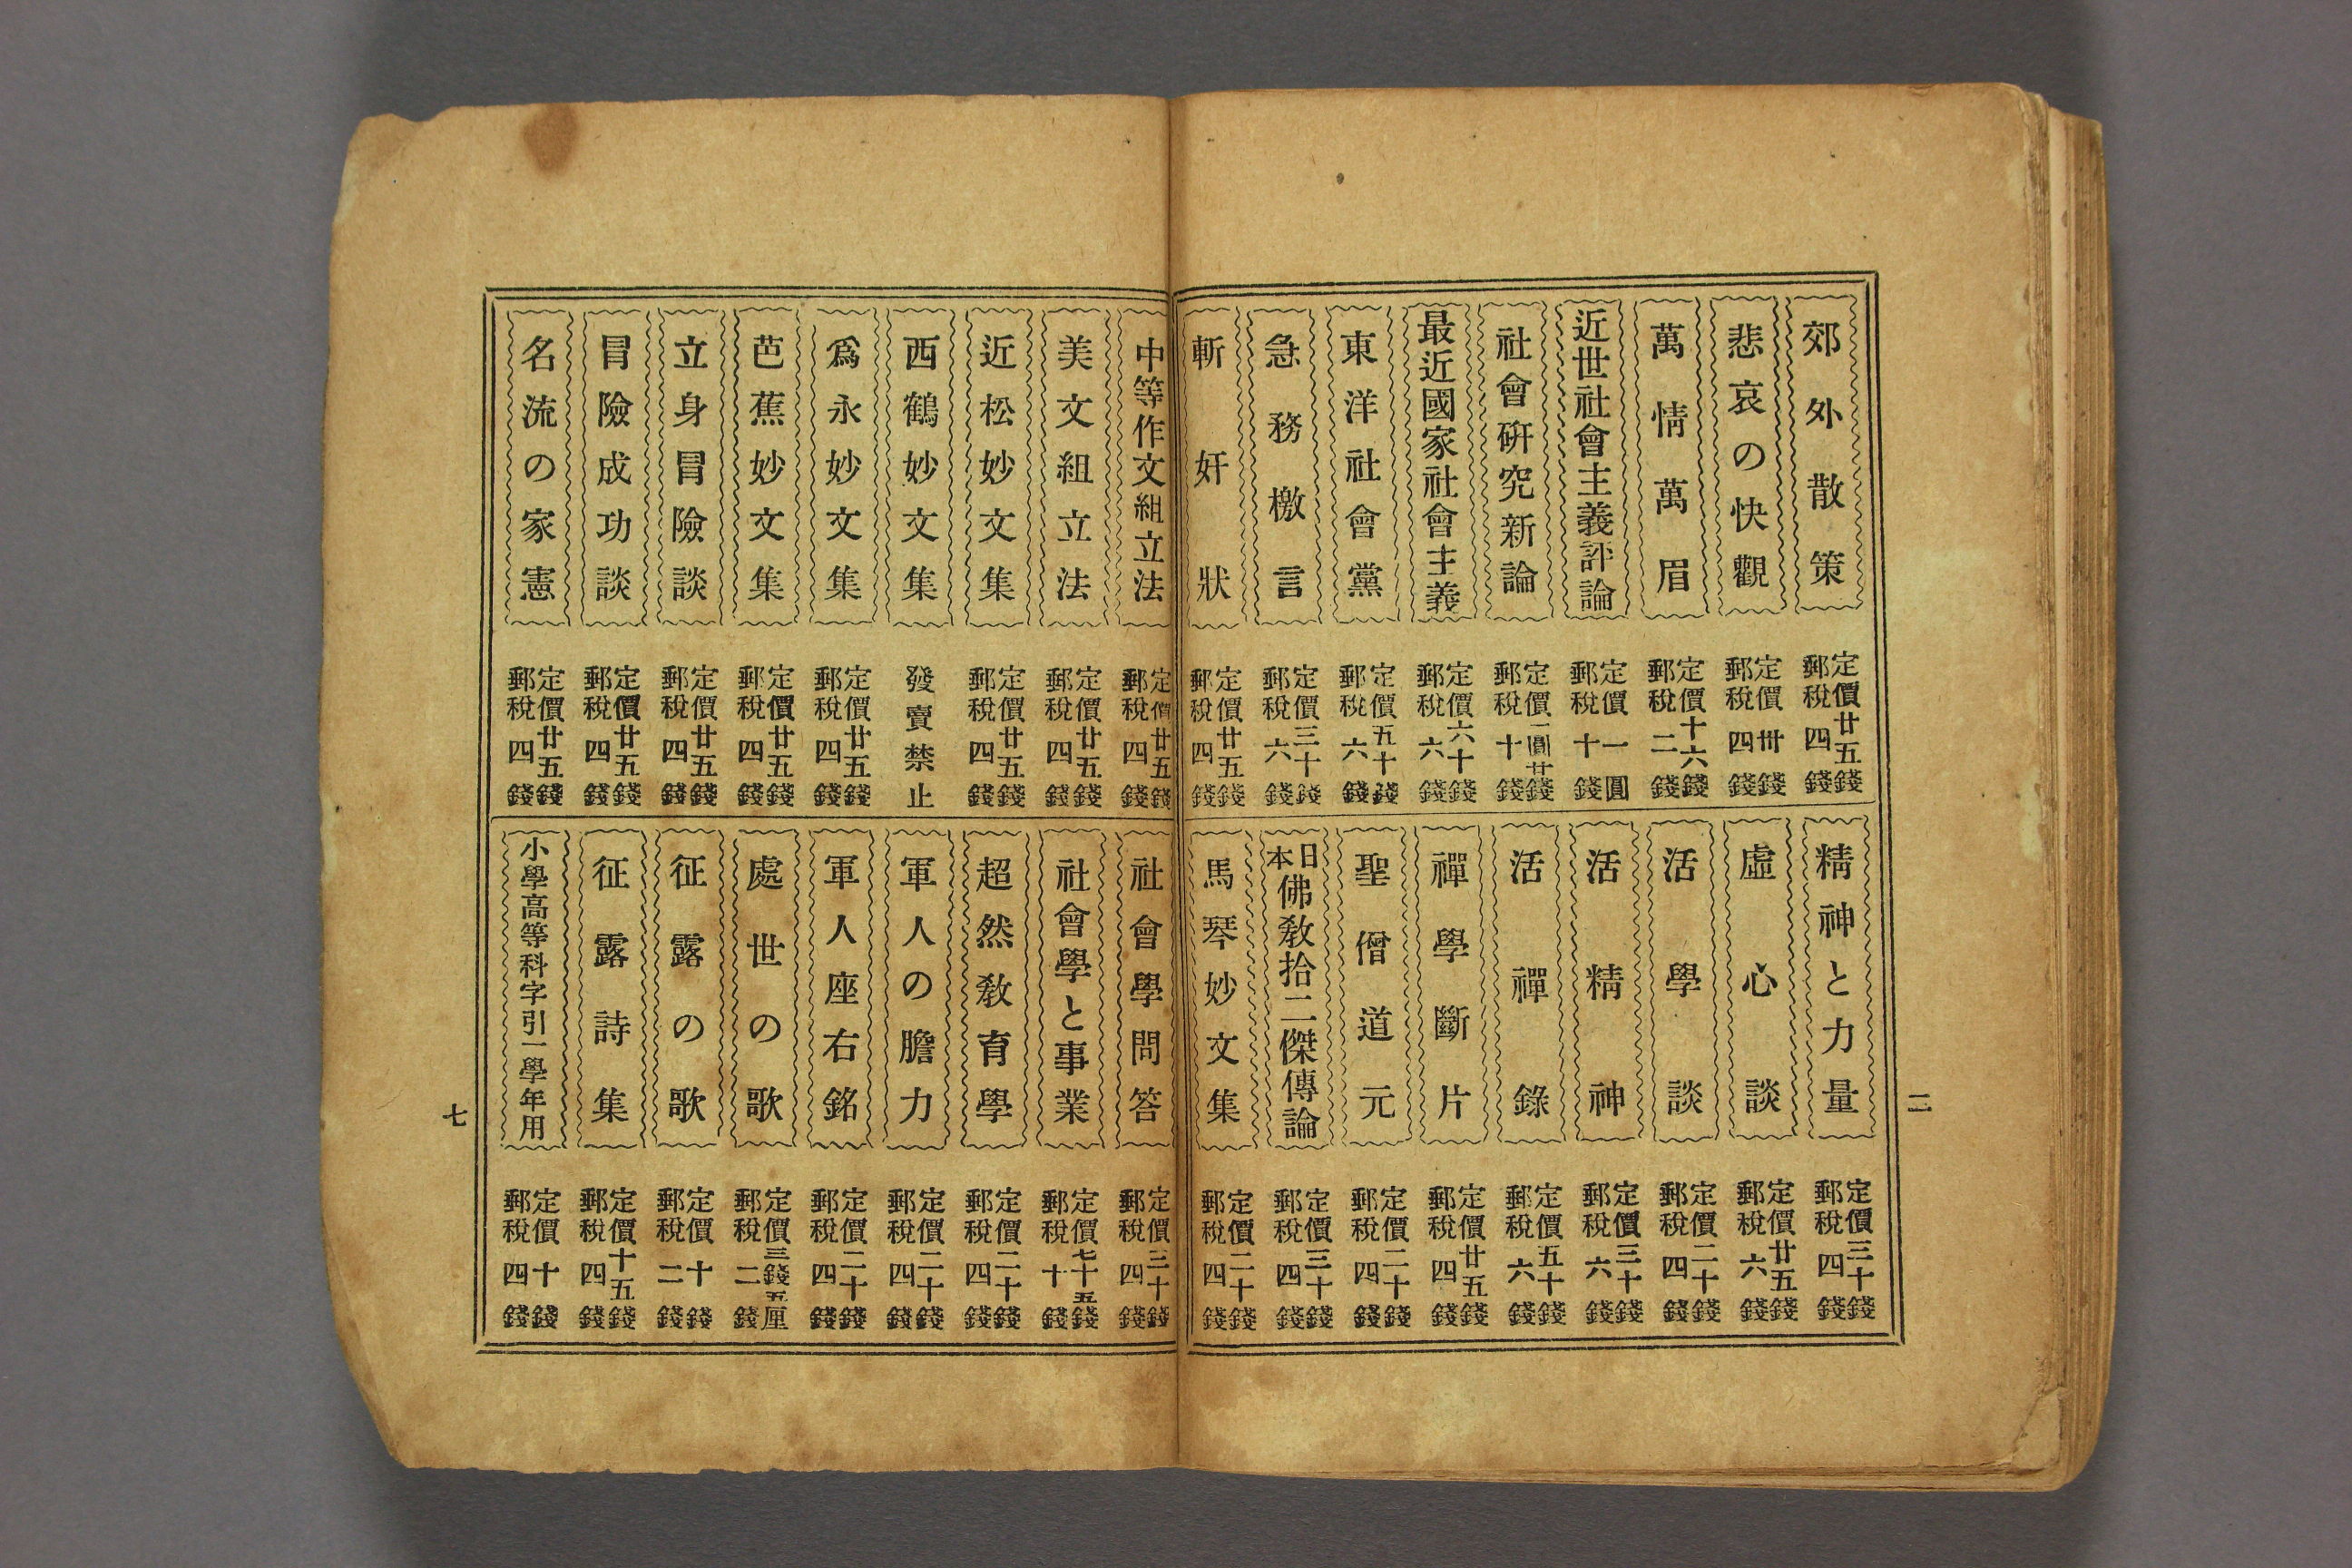 郊外散策
定價廿五錢
郵稅四錢
悲哀の快觀
定價卅錢
郵稅四錢
萬情萬眉
定價十六錢
郵稅二錢
近世社會主義評論
定價一圓
郵稅十錢
社會硏究新論
定價一圓廿錢
郵稅十錢
最近國家社會主義
定價六十錢
郵稅六錢
東洋社會黨
定價五十錢
郵稅六錢
急務檄言
定價三十錢
郵稅六錢
斬奸狀
定價廿五錢
郵稅四錢
精神と力量
定價三十錢
郵稅四錢
虛心談
定價廿五錢
郵稅六錢
活學談
定價二十錢
郵稅四錢
活精神
定價三十錢
郵稅六錢
活禪錄
定價五十錢
郵稅六錢
禪學斷片
定價廿五錢
郵稅四錢
聖僧道元
定價二十錢
郵稅四錢
日本佛敎拾二傑傳論
定價三十錢
郵稅四錢
馬琴妙文集
定價二十錢
郵稅四錢
二
中等作文組立法
定價廿五錢
郵稅四錢
美文組立法
定價廿五錢
郵稅四錢
近松妙文集
定價廿五錢
郵稅四錢
西鶴妙文集
發賣禁止
爲永妙文集
定價廿五錢
郵稅四錢
芭蕉妙文集
定價廿五錢
郵稅四錢
立身冒險談
定價廿五錢
郵稅四錢
冒險成功談
定價廿五錢
郵稅四錢
名流の家憲
定價廿五錢
郵稅四錢
社會學問答
定價三十錢
郵稅四錢
社會學と事業
定價七十五錢
郵稅十錢
超然敎育學
定價二十錢
郵稅四錢
軍人の膽力
定價二十錢
郵稅四錢
軍人座右銘
定價二十錢
郵稅四錢
處世の歌
定價三錢五厘
郵稅二錢
征露の歌
定價十錢
郵稅二錢
征露詩集
定價十五錢
郵稅四錢
小學高等科字引一學年用
定價十錢
郵稅四錢
七